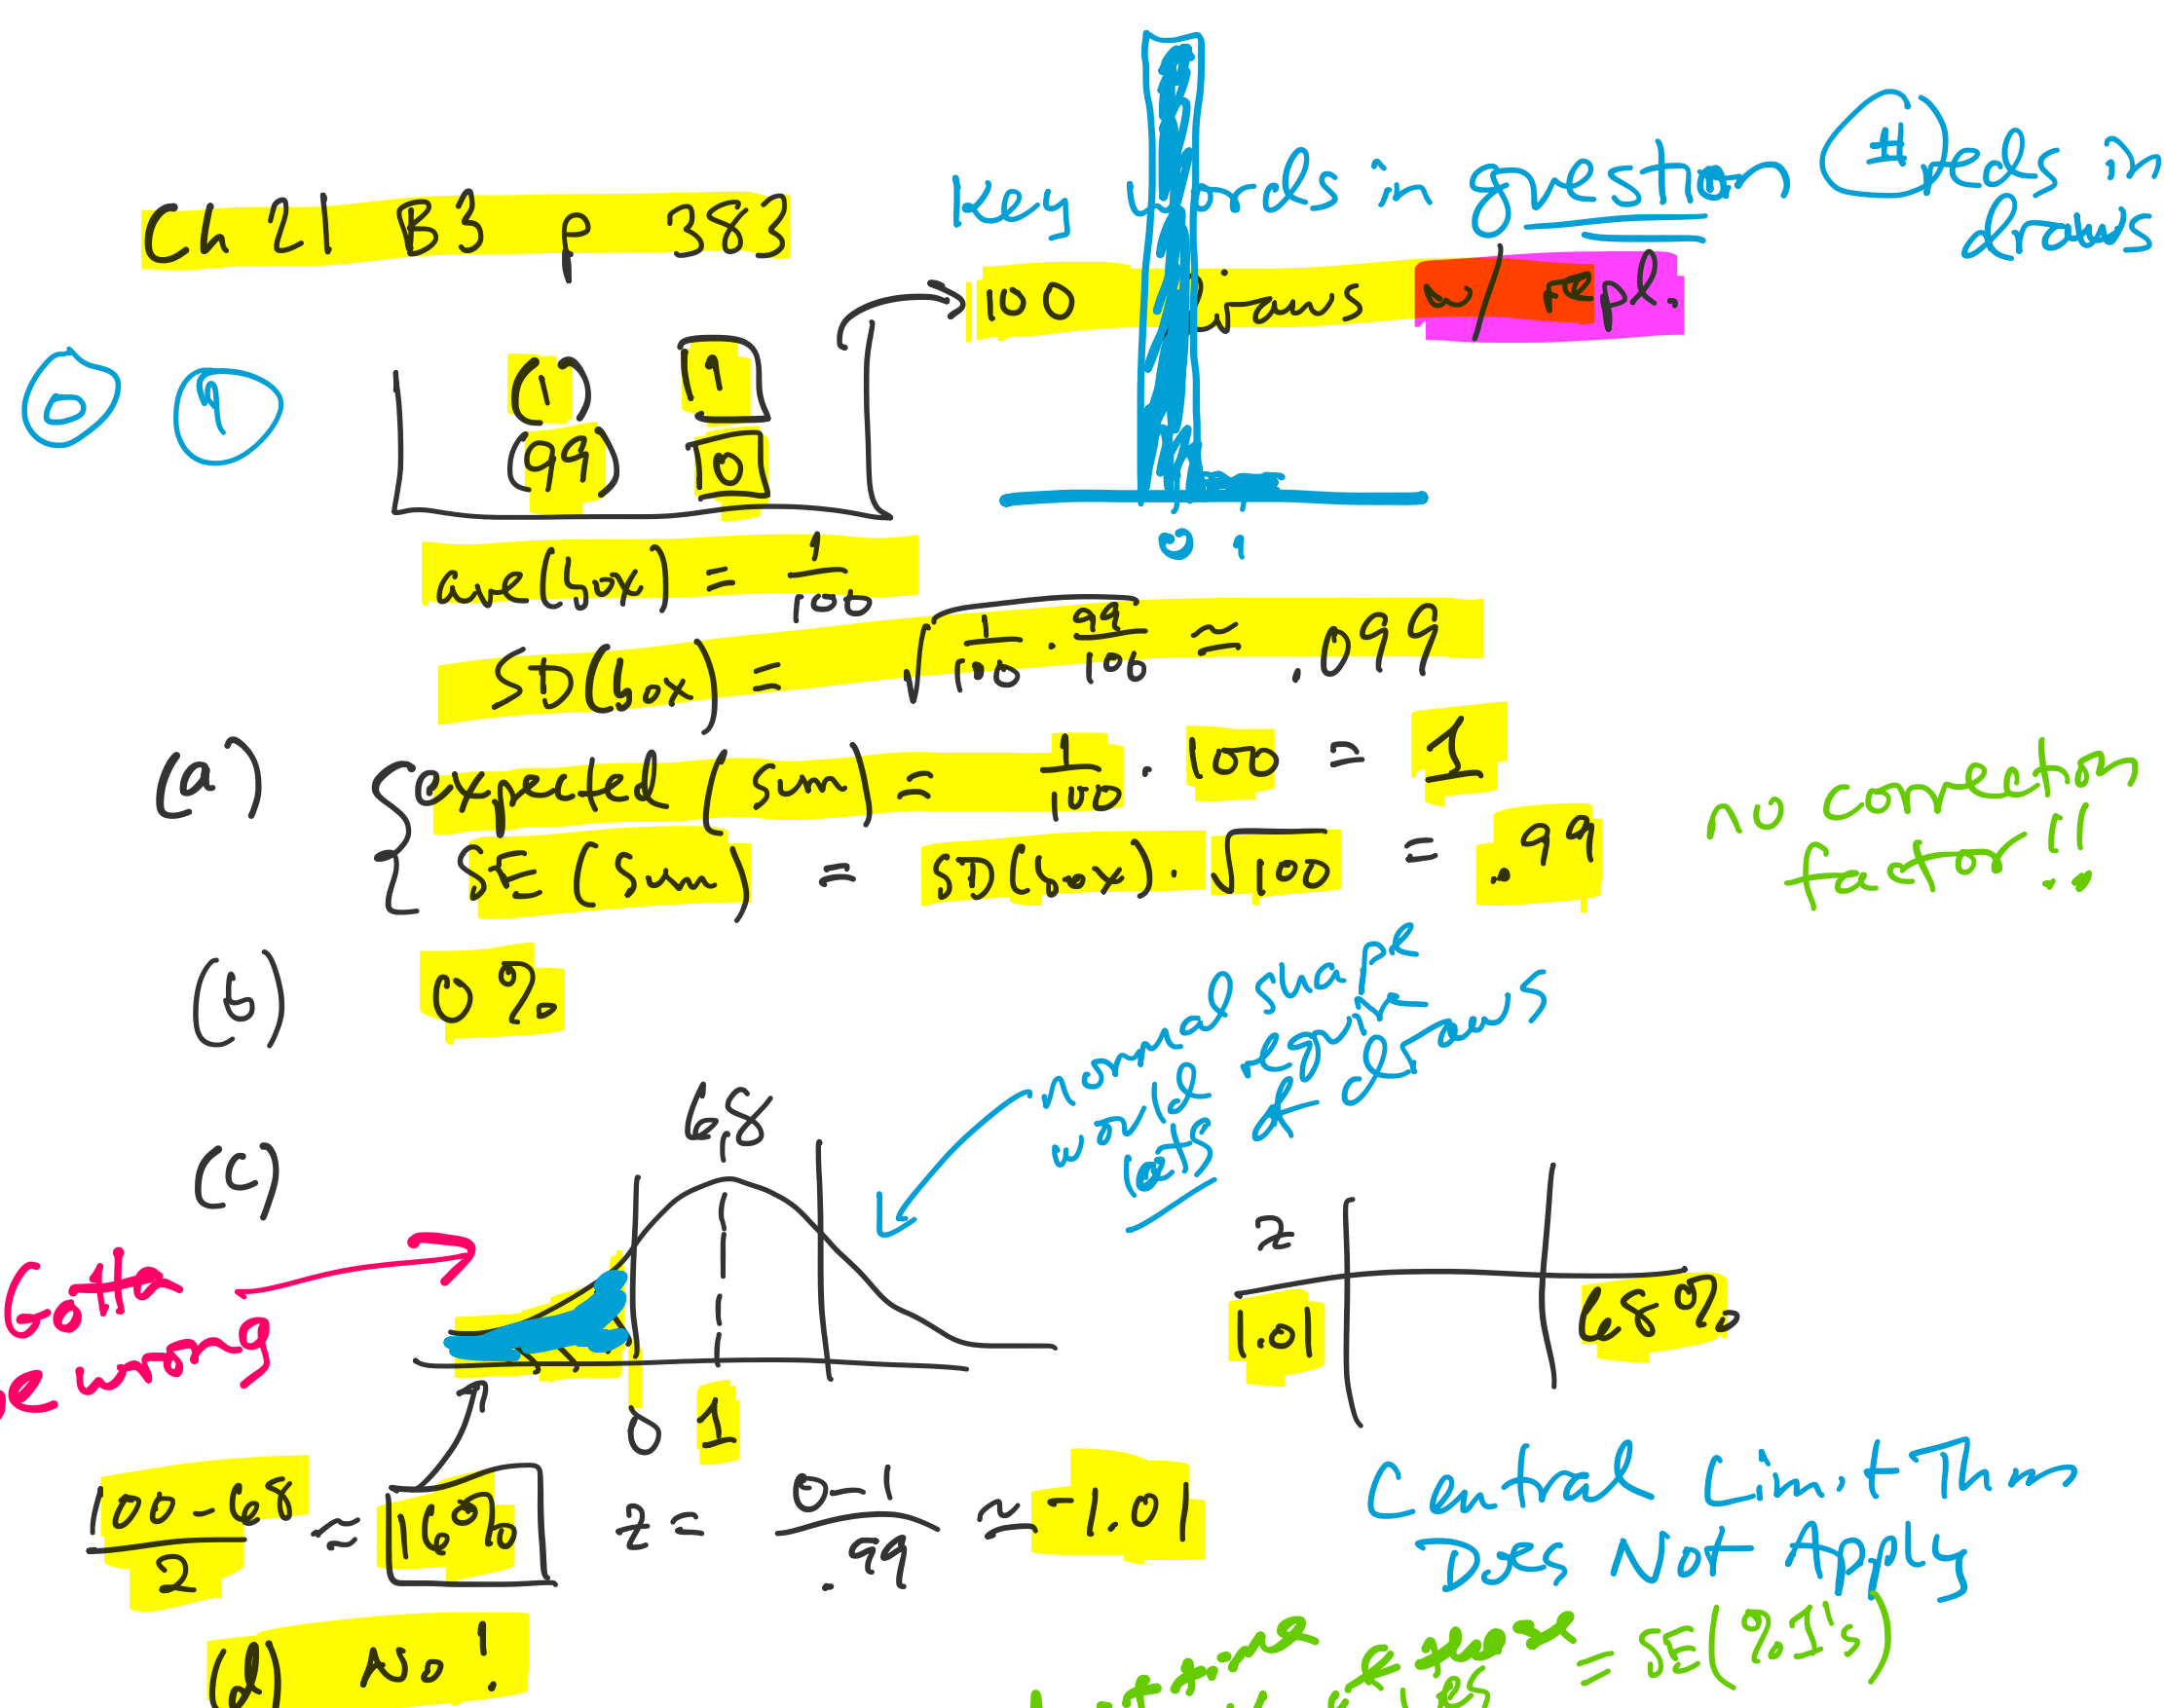 Ch 21 B3 p 383
key words in question
# reds in draws
100 draws w/ repl.
0 1
(1) 1
(99) 0
0 1
ave(box) = 1/100
SD(box) = √(1/100 · 99/100) ≈ .099
(a) expected(sum) = 1/100 · 100 = 1
SE(sum) = SD(box) · √100 = .99
no correction
factor!!
(b) 0%
normal shape
would require
lots of draws
(c)
68
Gotta
be wrong
0 1
z
1.01 68%
100-68/2 = 16% z = 0-1/.99 ≈ -1.01
Central Limit Thm
Does Not Apply
(d) No!
= SE(% 1's)